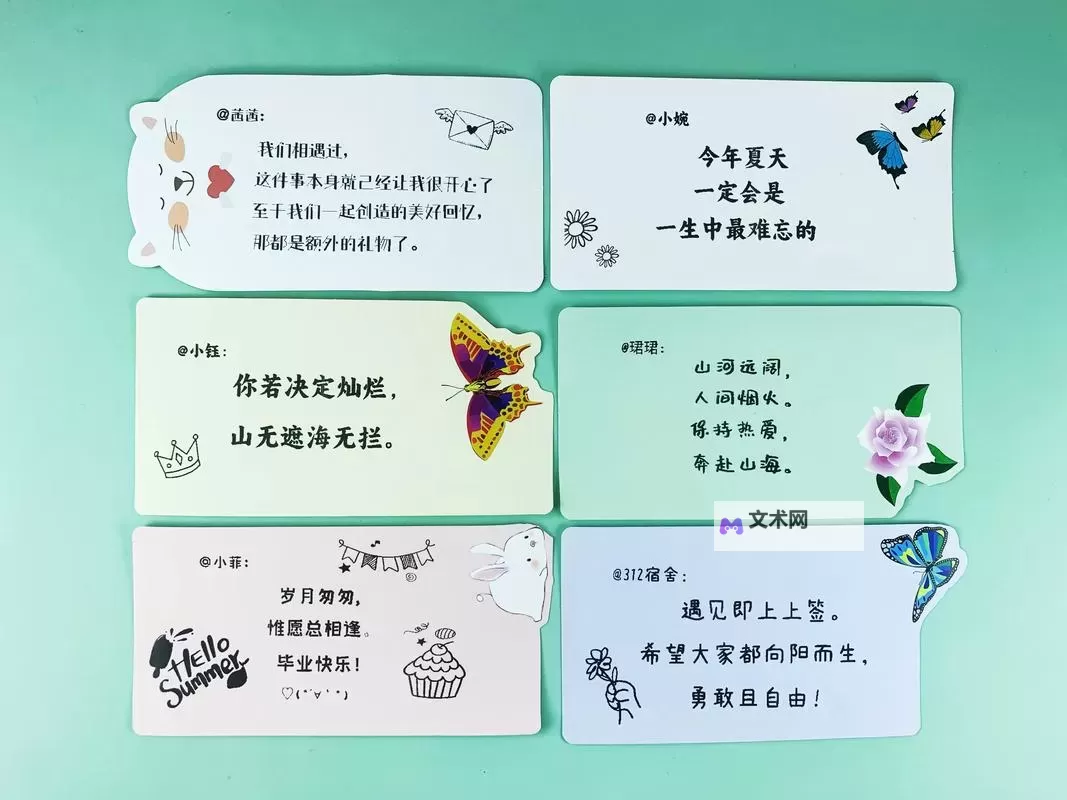 @茜茜:
我们相遇过,
这件事本身就已经让我很开心了
至于我们一起创造的美好回忆,
那都是额外的礼物了。
@小婉
今年夏天
一定会是
一生中最难忘的
@小钰:
你若决定灿烂,
山无遮海无拦。
@珺珺:
山河远阔,
人间烟火。
保持热爱,
奔赴山海。
文术网
@小菲:
岁月匆匆,
惟愿总相逢。
毕业快乐!
♡(*'∀'*)
Hello
Summer
@312宿舍:
遇见即上上签。
希望大家都向阳而生,
勇敢且自由!